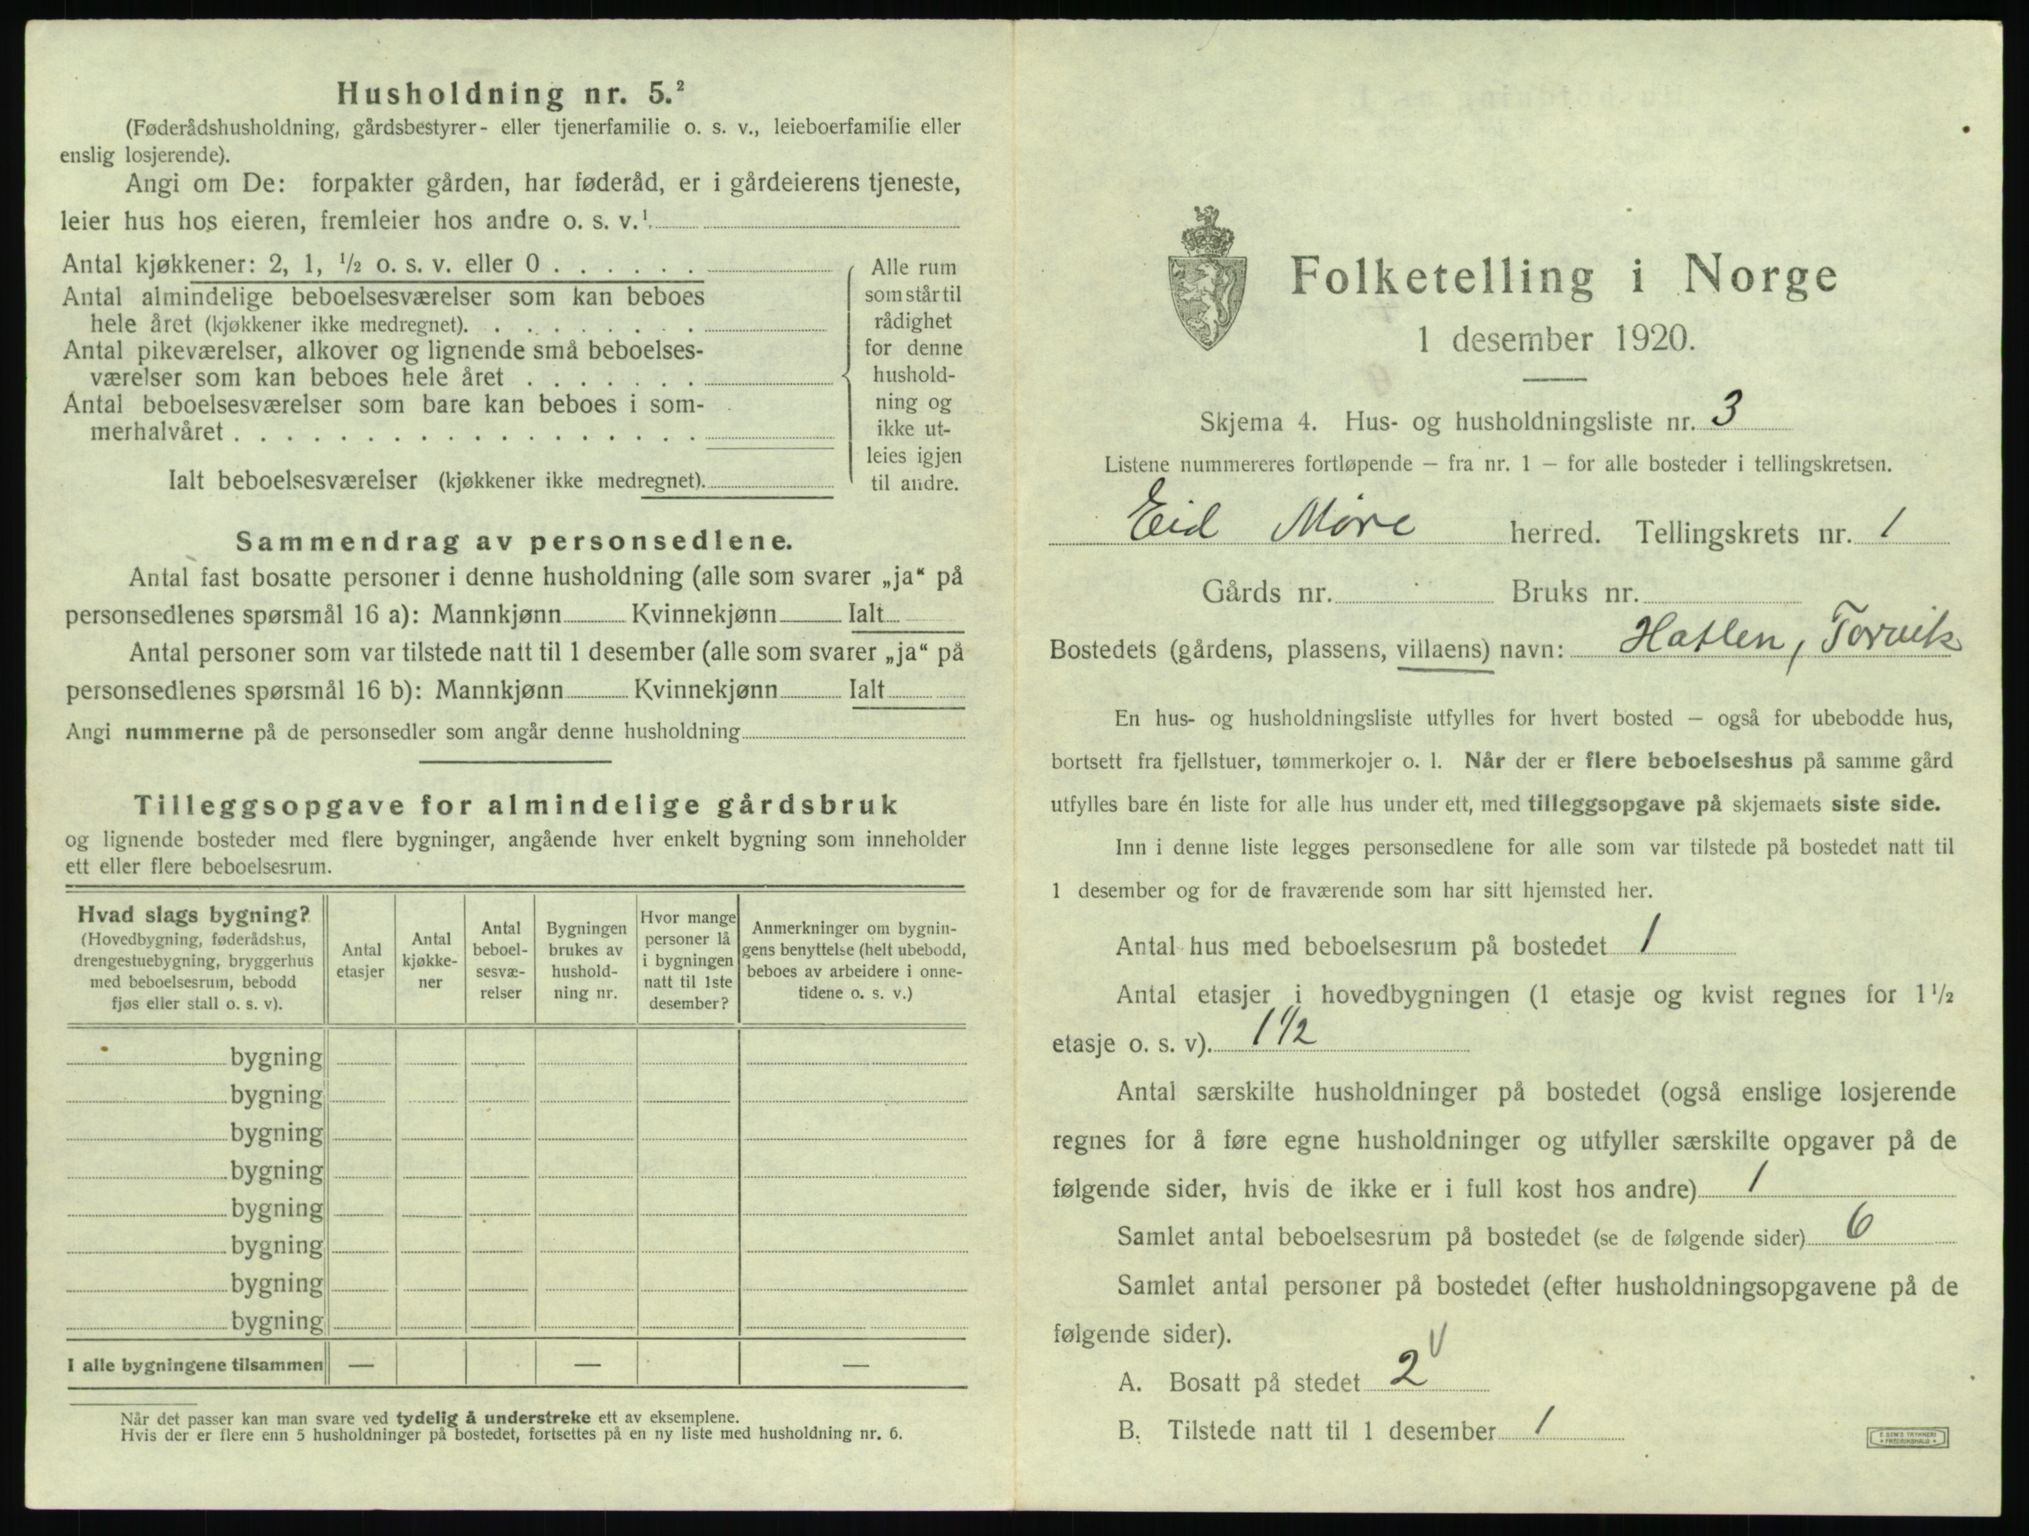 Husholdning nr. 5.²
(Føderådshusholdning, gårdsbestyrer- eller tjenerfamilie o. s. v., leieboerfamilie eller
enslig losjerende).
Angi om De: forpakter gården, har føderåd, er i gårdeierens tjeneste,
leier hus hos eieren, fremleier hos andre o. s. v.¹
Antal kjøkkener: 2, 1, ½ o. s. v. eller 0 . . . . . .
Antal almindelige beboelsesværelser som kan beboes
hele året (kjøkkener ikke medregnet). . . . . . . . .
Antal pikeværelser, alkover og lignende små beboelses-
værelser som kan beboes hele året . . . . . . .
Antal beboelsesværelser som bare kan beboes i som-
merhalvåret . . . . . . . . . . . . . . . . . .
Ialt beboelsesværelser (kjøkkener ikke medregnet).
Alle rum
som står til
rådighet
for denne
hushold-
ning og
ikke ut-
leies igjen
til andre.
Sammendrag av personsedlene.
Antal fast bosatte personer i denne husholdning (alle som svarer „ja“ på
personsedlenes spørsmål 16 a): Mannkjønn Kvinnekjønn Ialt
Antal personer som var tilstede natt til 1 desember (alle som svarer „ja“ på
personsedlenes spørsmål 16 b): Mannkjønn Kvinnekjønn Ialt
Angi nummerne på de personsedler som angår denne husholdning
Tilleggsopgave for almindelige gårdsbruk
og lignende bosteder med flere bygninger, angående hver enkelt bygning som inneholder
ett eller flere beboelsesrum.
Hvad slags bygning?
(Hovedbygning, føderådshus,
drengestuebygning, bryggerhus
med beboelsesrum, bebodd
fjøs eller stall o. s. v).
Antal
etasjer
Antal
kjøkke-
ner
Antal
beboel-
sesvæ-
relser
Bygningen
brukes av
hushold-
ning nr.
Hvor mange
personer lå
i bygningen
natt til 1ste
desember?
Anmerkninger om bygnin-
gens benyttelse (helt ubebodd,
beboes av arbeidere i onne-
tidene o. s. v.)
bygning
bygning
bygning
bygning
bygning
bygning
bygning
bygning
I alle bygningene tilsammen — — —
Når det passer kan man svare ved tydelig å understreke ett av eksemplene.
Hvis der er flere enn 5 husholdninger på bostedet, fortsettes på en ny liste med husholdning nr. 6.
Folketelling i Norge
1 desember 1920.
Skjema 4. Hus- og husholdningsliste nr. 3
Listene nummereres fortløpende – fra nr. 1 – for alle bosteder i tellingskretsen.
Eid Møre herred. Tellingskrets nr. 1
Gårds nr. Bruks nr.
Bostedets (gårdens, plassens, villaens) navn: Hatlen, Torvik
En hus- og husholdningsliste utfylles for hvert bosted – også for ubebodde hus,
bortsett fra fjellstuer, tømmerkojer o. l. Når der er flere beboelseshus på samme gård
utfylles bare én liste for alle hus under ett, med tilleggsopgave på skjemaets siste side.
Inn i denne liste legges personsedlene for alle som var tilstede på bostedet natt til
1 desember og for de fraværende som har sitt hjemsted her.
Antal hus med beboelsesrum på bostedet 1
Antal etasjer i hovedbygningen (1 etasje og kvist regnes for 1½
etasje o. s. v). 1½
Antal særskilte husholdninger på bostedet (også enslige losjerende
regnes for å føre egne husholdninger og utfyller særskilte opgaver på de
følgende sider, hvis de ikke er i full kost hos andre) 1
Samlet antal beboelsesrum på bostedet (se de følgende sider) 6
Samlet antal personer på bostedet (efter husholdningsopgavene på de
følgende sider).
A. Bosatt på stedet 2
B. Tilstede natt til 1 desember 1